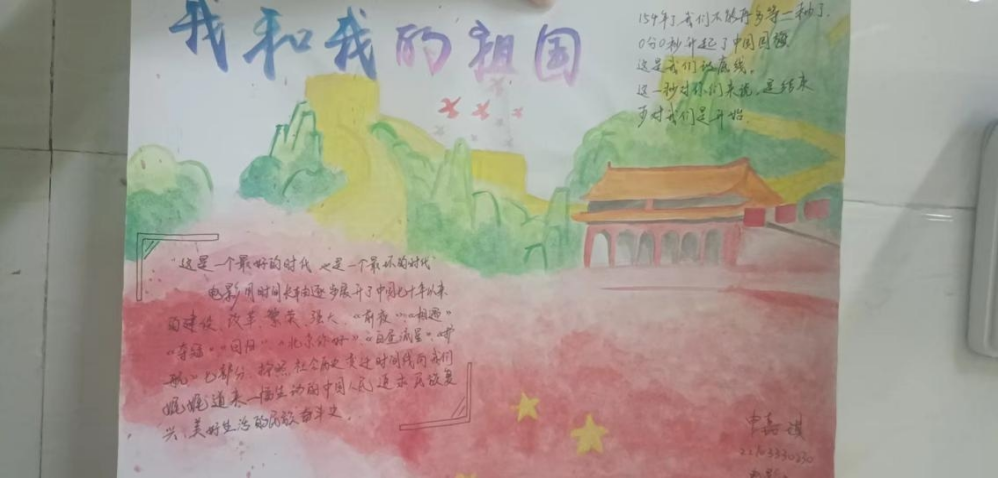 我和我的祖国
154年了,我们不能再多等一秒了,
0分0秒升起了中国国旗
这是我们的底线,
这一秒对你们来说,是结束
对我们是开始
"这是一个最好的时代 也是一个最坏的时代"
电影用时间长车由逐步展开了中国七十年以来
的建设、改革、繁荣、强大,《前夜》《相遇》
《夺冠》《回归》《北京你好》《白昼流星》《护
航》七部分,按照社会历史变迁时间线向我们
娓娓道来一幅生动的中国人民追求民族复
兴、美好生活的民族奋斗史。